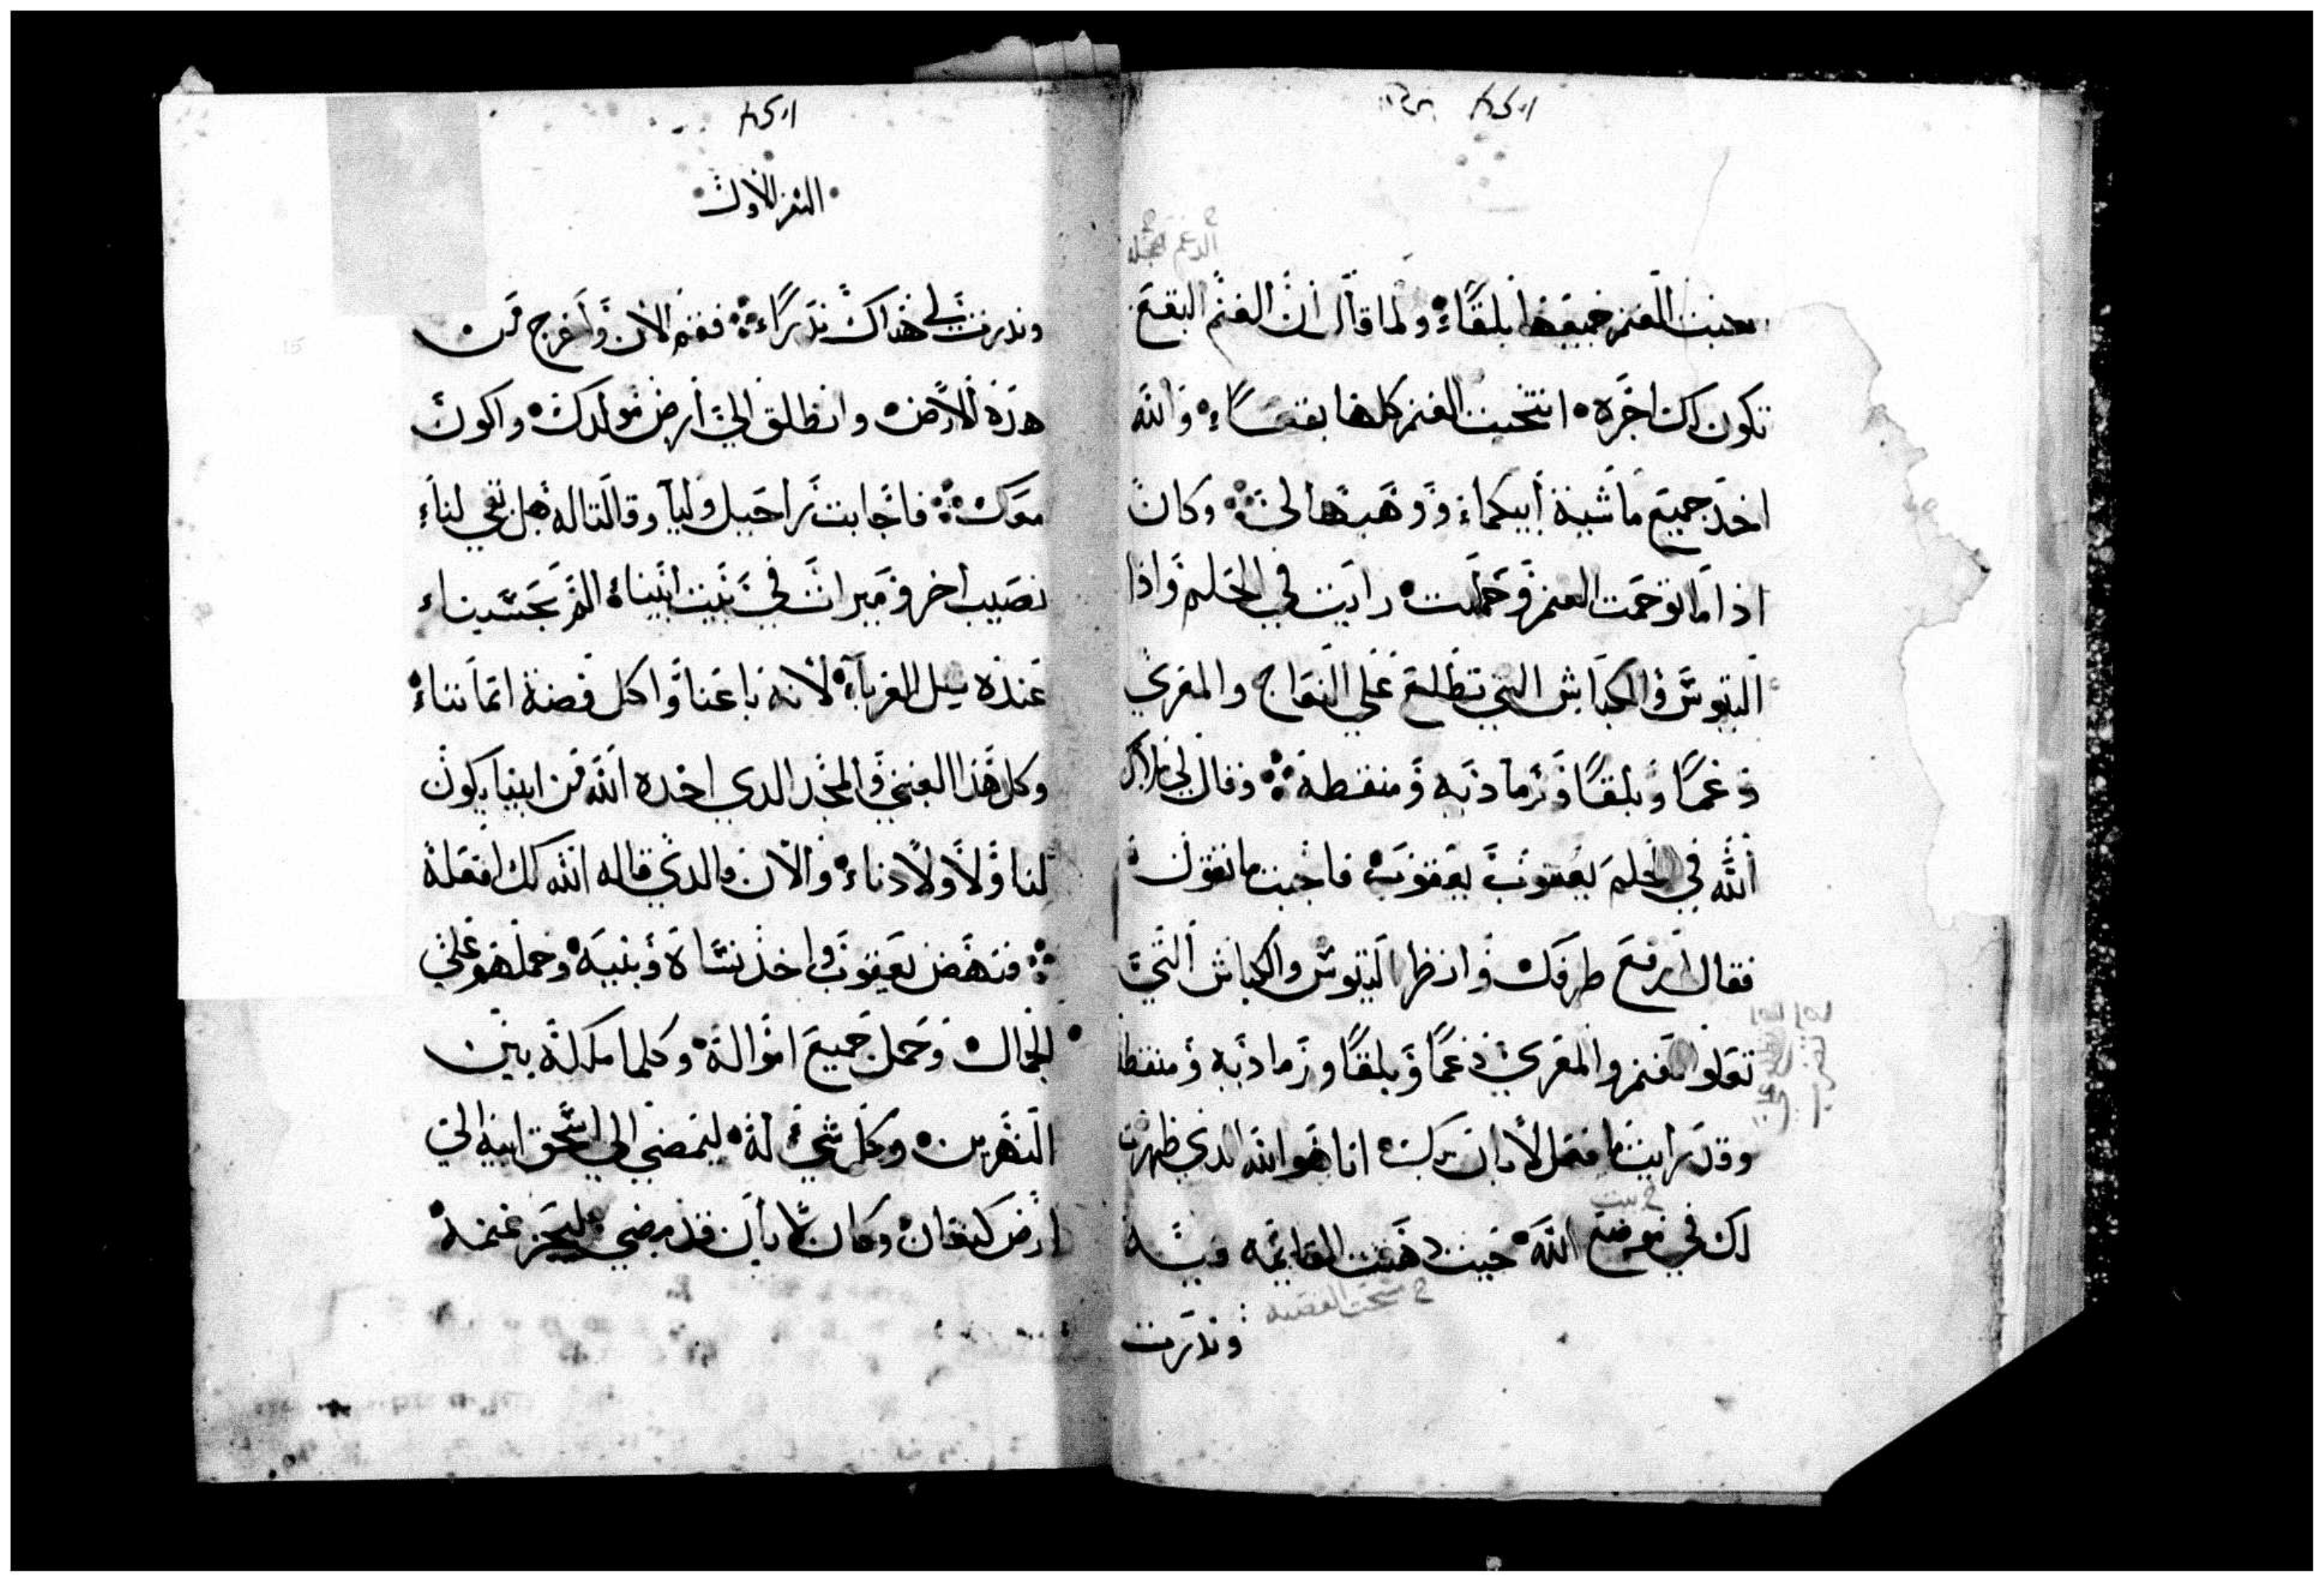 نتجت الغنم جميعها بلقاء ولما قال ان الغنم البقع
تكون لك اجره انتجت الغنم كلها بقعاء والله
اخذ جميع ماشية أبيكما ووهبها لي وكان
اذا ما توحمت الغنم وحملت رايت في الحلم واذا
التيوس والكباش التي تطلع علي النعاج والمعزي
دغمًا وبلقًا ورمادية ومنقطة وقال لي ملاك
الله في الحلم يعقوب يعقوب فاجبت ما تقول
فقال ارفع طرفك وانظر التيوس والكباش التي
تعلوا الغنم والمعزي دغمًا وبلقًا ورمادية ومنقطة
وقد رايت ما فعل لابان بك انا هو الله الدي ظهرت
لك في موضع الله حيت دهنت القايمه
ونذرت
السفر الاول
ونذرت لي هناك نذراء فقم الان واخرج من
هذه الارض وانطلق الي أرض مولدك واكون
معك فاجابت راحيل وليا وقالتا له هل بقي لنا
نصيب اخر وميرات في بيت ابينا الم يحسبنا
عنده مثل الغربآ لانه باعنا واكل فضة اتماننا
وكل هذا الغني والمجد الدي اخده الله من ابينا يكون
لنا ولاولادنا والان والدي قاله الله لك افعله
فنهض يعقوب واخذ نساة وبنيه وحملهم علي
الجمال وحمل جميع امواله وكلما ملكه بين
النهرين وكل شي له ليمضي الي اسحق ابيه الي
ارض كنعان وكان لابان قد مضي ليجز غنمه